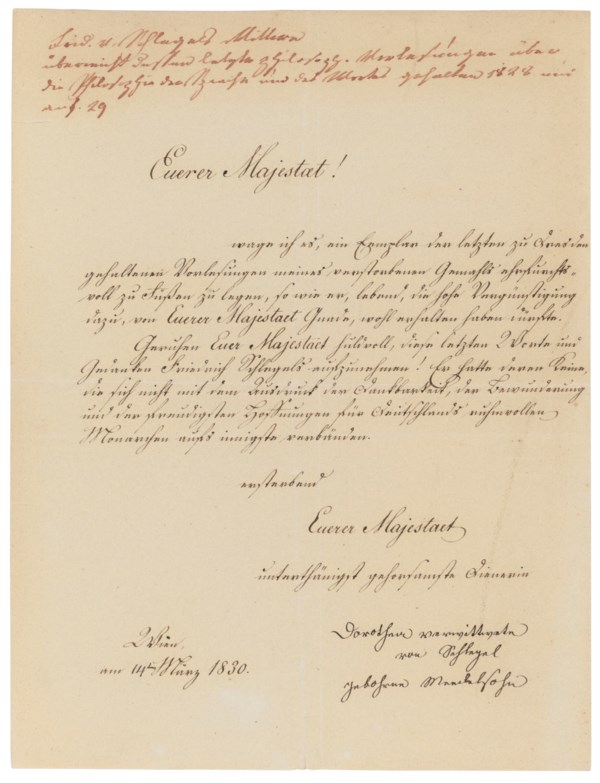 Frid. v. Schlegels Wittwe
überreicht dessen letzte philosoph. Vorlesungen über
die Philosophie der Sprache und des Wortes gehalten 1828 bis
auf. 29
Euerer Majestæt!
wage ich es, ein Exemplar der letzten zu Dresden
gehaltenen Vorlesungen meines verstorbenen Gemahls ehrfurchts-
voll zu Füßen zu legen, so wie er, lebend, die hohe Vergünstigung
dazu, von Euerer Majestaet Gnade, wohl erhalten haben dürfte.
Geruhen Euer Majestaet huldvoll, diese letzten Worte und
Gedanken Friedrich Schlegels aufzunehmen! Er hatte deren Keine,
die sich nicht mit dem Ausdruck der Dankbarkeit, der Bewunderung
und der freudigsten Hoffnungen für Deutschlands ruhmvollen
Monarchen aufs innigste verbänden.
ersterbend
Euerer Majestaet
unterthänigst gehorsamste Dienerin
Dorothea verwittwete
von Schlegel
gebohrne Mendelsohn
Wien,
am 14ten März 1830.